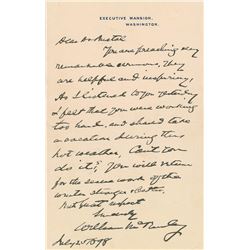 EXECUTIVE MANSION,
WASHINGTON.
Dear Dr Bristol
You are preaching very
remarkable sermons, they
are helpful and inspiring,
As I listened to you yesterday
I felt that you were working
too hard, and should take
a vacation during this
hot weather. Can't you
do it? You will return
for the severe work of the
winter stronger & better.
With great respect
Sincerely
William McKinley
July 25 1898